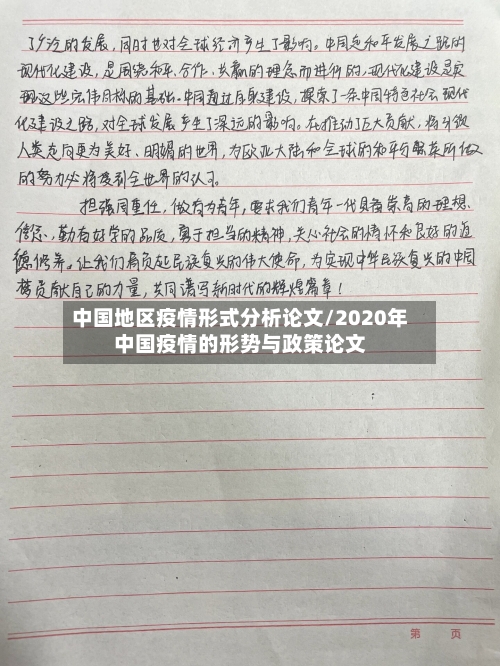 了广泛的发展，同时也对全球经济产生了影响。中国走和平发展之路的
现代化建设，是围绕和平、合作、共赢的理念而进行的，现代化建设是实
现这些宏伟目标的基础。中国通过自身建设，探索了一条中国特色社会现代
化建设之路，对全球发展产生了深远的影响。在推动了巨大贡献，将引领
人类走向更为美好、明媚的世界，为欧亚大陆和全球的和平与繁荣所做
的努力必将受到全世界的认可。
担强国重任，做有为青年，要求我们青年一代具备崇高的理想、
信念，勤奋好学的品质，勇于担当的精神，关心社会的情怀和良好的道
德修养。让我们肩负起民族复兴的伟大使命，为实现中华民族复兴的中国
梦贡献自己的力量，共同谱写新时代的辉煌篇章！
中国地区疫情形式分析论文/2020年
中国疫情的形势与政策论文
第 页